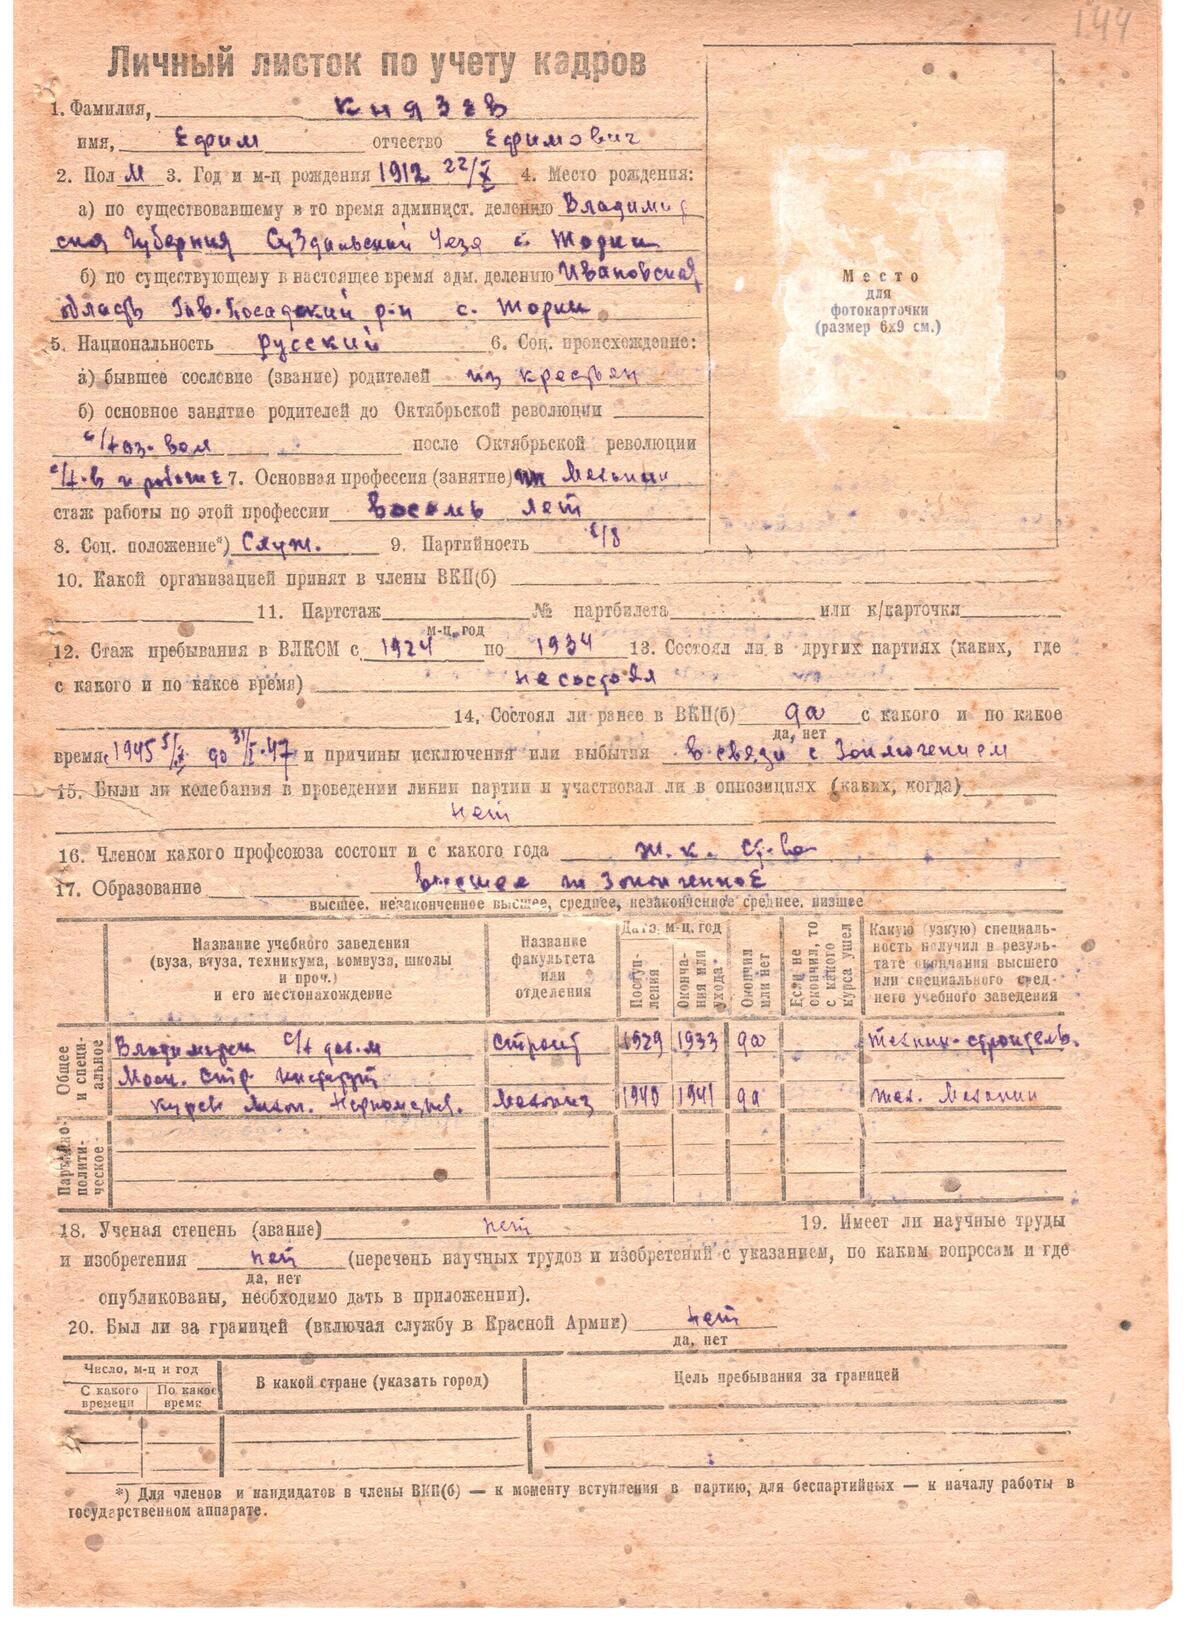 144
Личный листок по учету кадров
1. Фамилия, Князев
имя, Ефим отчество Ефимович
2. Пол М 3. Год и м-ц рождения 1912 22/X 4. Место рождения:
а) по существовавшему в то время админист. делению Владимир
ская Губерния Суздальский Уезд с. Торки
б) по существующему в настоящее время адм. делению Ивановская
область Гав.-Посадский р-н с. Торки
5. Национальность русский 6. Соц. происхождение:
а) бывшее сословие (звание) родителей из крестьян
б) основное занятие родителей до Октябрьской революции
с/хоз-вом после Октябрьской революции
с/х-в и рабочие 7. Основная профессия (занятие) Механик
стаж работы по этой профессии восемь лет
8. Соц. положение*) Служ. 9. Партийность б/п
10. Какой организацией принят в члены ВКП(б)
11. Партстаж № партбилета или к/карточки
м-ц, год
12. Стаж пребывания в ВЛКСМ с 1924 по 1934 13. Состоял ли в других партиях (каких, где
с какого и по какое время) не состоял
14. Состоял ли ранее в ВКП(б) да с какого и по какое
да, нет
время с 1945 до 47 и причины исключения или выбытия в связи с Заключением
15. Были ли колебания в проведении линии партии и участвовал ли в оппозициях (каких, когда)
нет
16. Членом какого профсоюза состоит и с какого года ж. к. ст-ва
17. Образование высшее не Законченное
высшее, незаконченное высшее, среднее, незаконченное среднее, низшее
Название учебного заведения
(вуза, втуза, техникума, комвуза, школы
и проч.)
и его местонахождение
Название
факультета
или
отделения
Дата, м-ц, год
Поступ-
ления
Оконча-
ния или
ухода
Окончил
или нет
Если не
окончил, то
с какого
курса ушел
Какую (узкую) специаль-
ность получил в резуль-
тате окончания высшего
или специального сред-
него учебного заведения
Общее
и специ-
альное
Строит 1929 1933 да техник-строитель.
Моск. Стр. Институт
курсы 1940 1941 да тех. Механик
Партийно-
полити-
ческое
18. Ученая степень (звание) нет 19. Имеет ли научные труды
и изобретения нет (перечень научных трудов и изобретений с указанием, по каким вопросам и где
да, нет
опубликованы, необходимо дать в приложении).
20. Был ли за границей (включая службу в Красной Армии) нет
да, нет
Число, м-ц и год
С какого
времени
По какое
время
В какой стране (указать город)
Цель пребывания за границей
*) Для членов и кандидатов в члены ВКП(б) — к моменту вступления в партию, для беспартийных — к началу работы в
государственном аппарате.
Место
для
фотокарточки
(размер 6х9 см.)